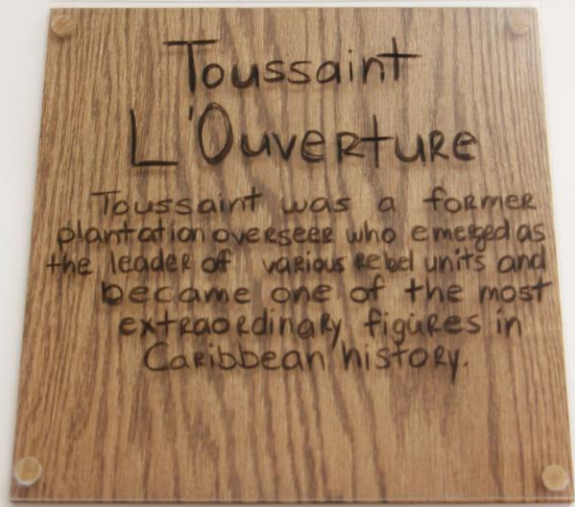 Toussaint
L'Ouverture
Toussaint was a former
plantation overseer who emerged as
the leader of various rebel units and
became one of the most
extraordinary figures in
Caribbean history.